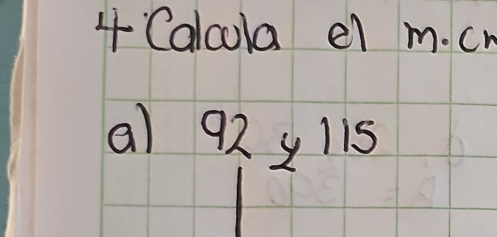 4 Calcula el m.c
a) 92 y 115